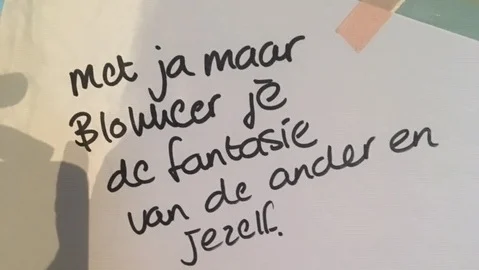 met ja maar
Blokkeer je
de fantasie
van de ander en
jezelf.